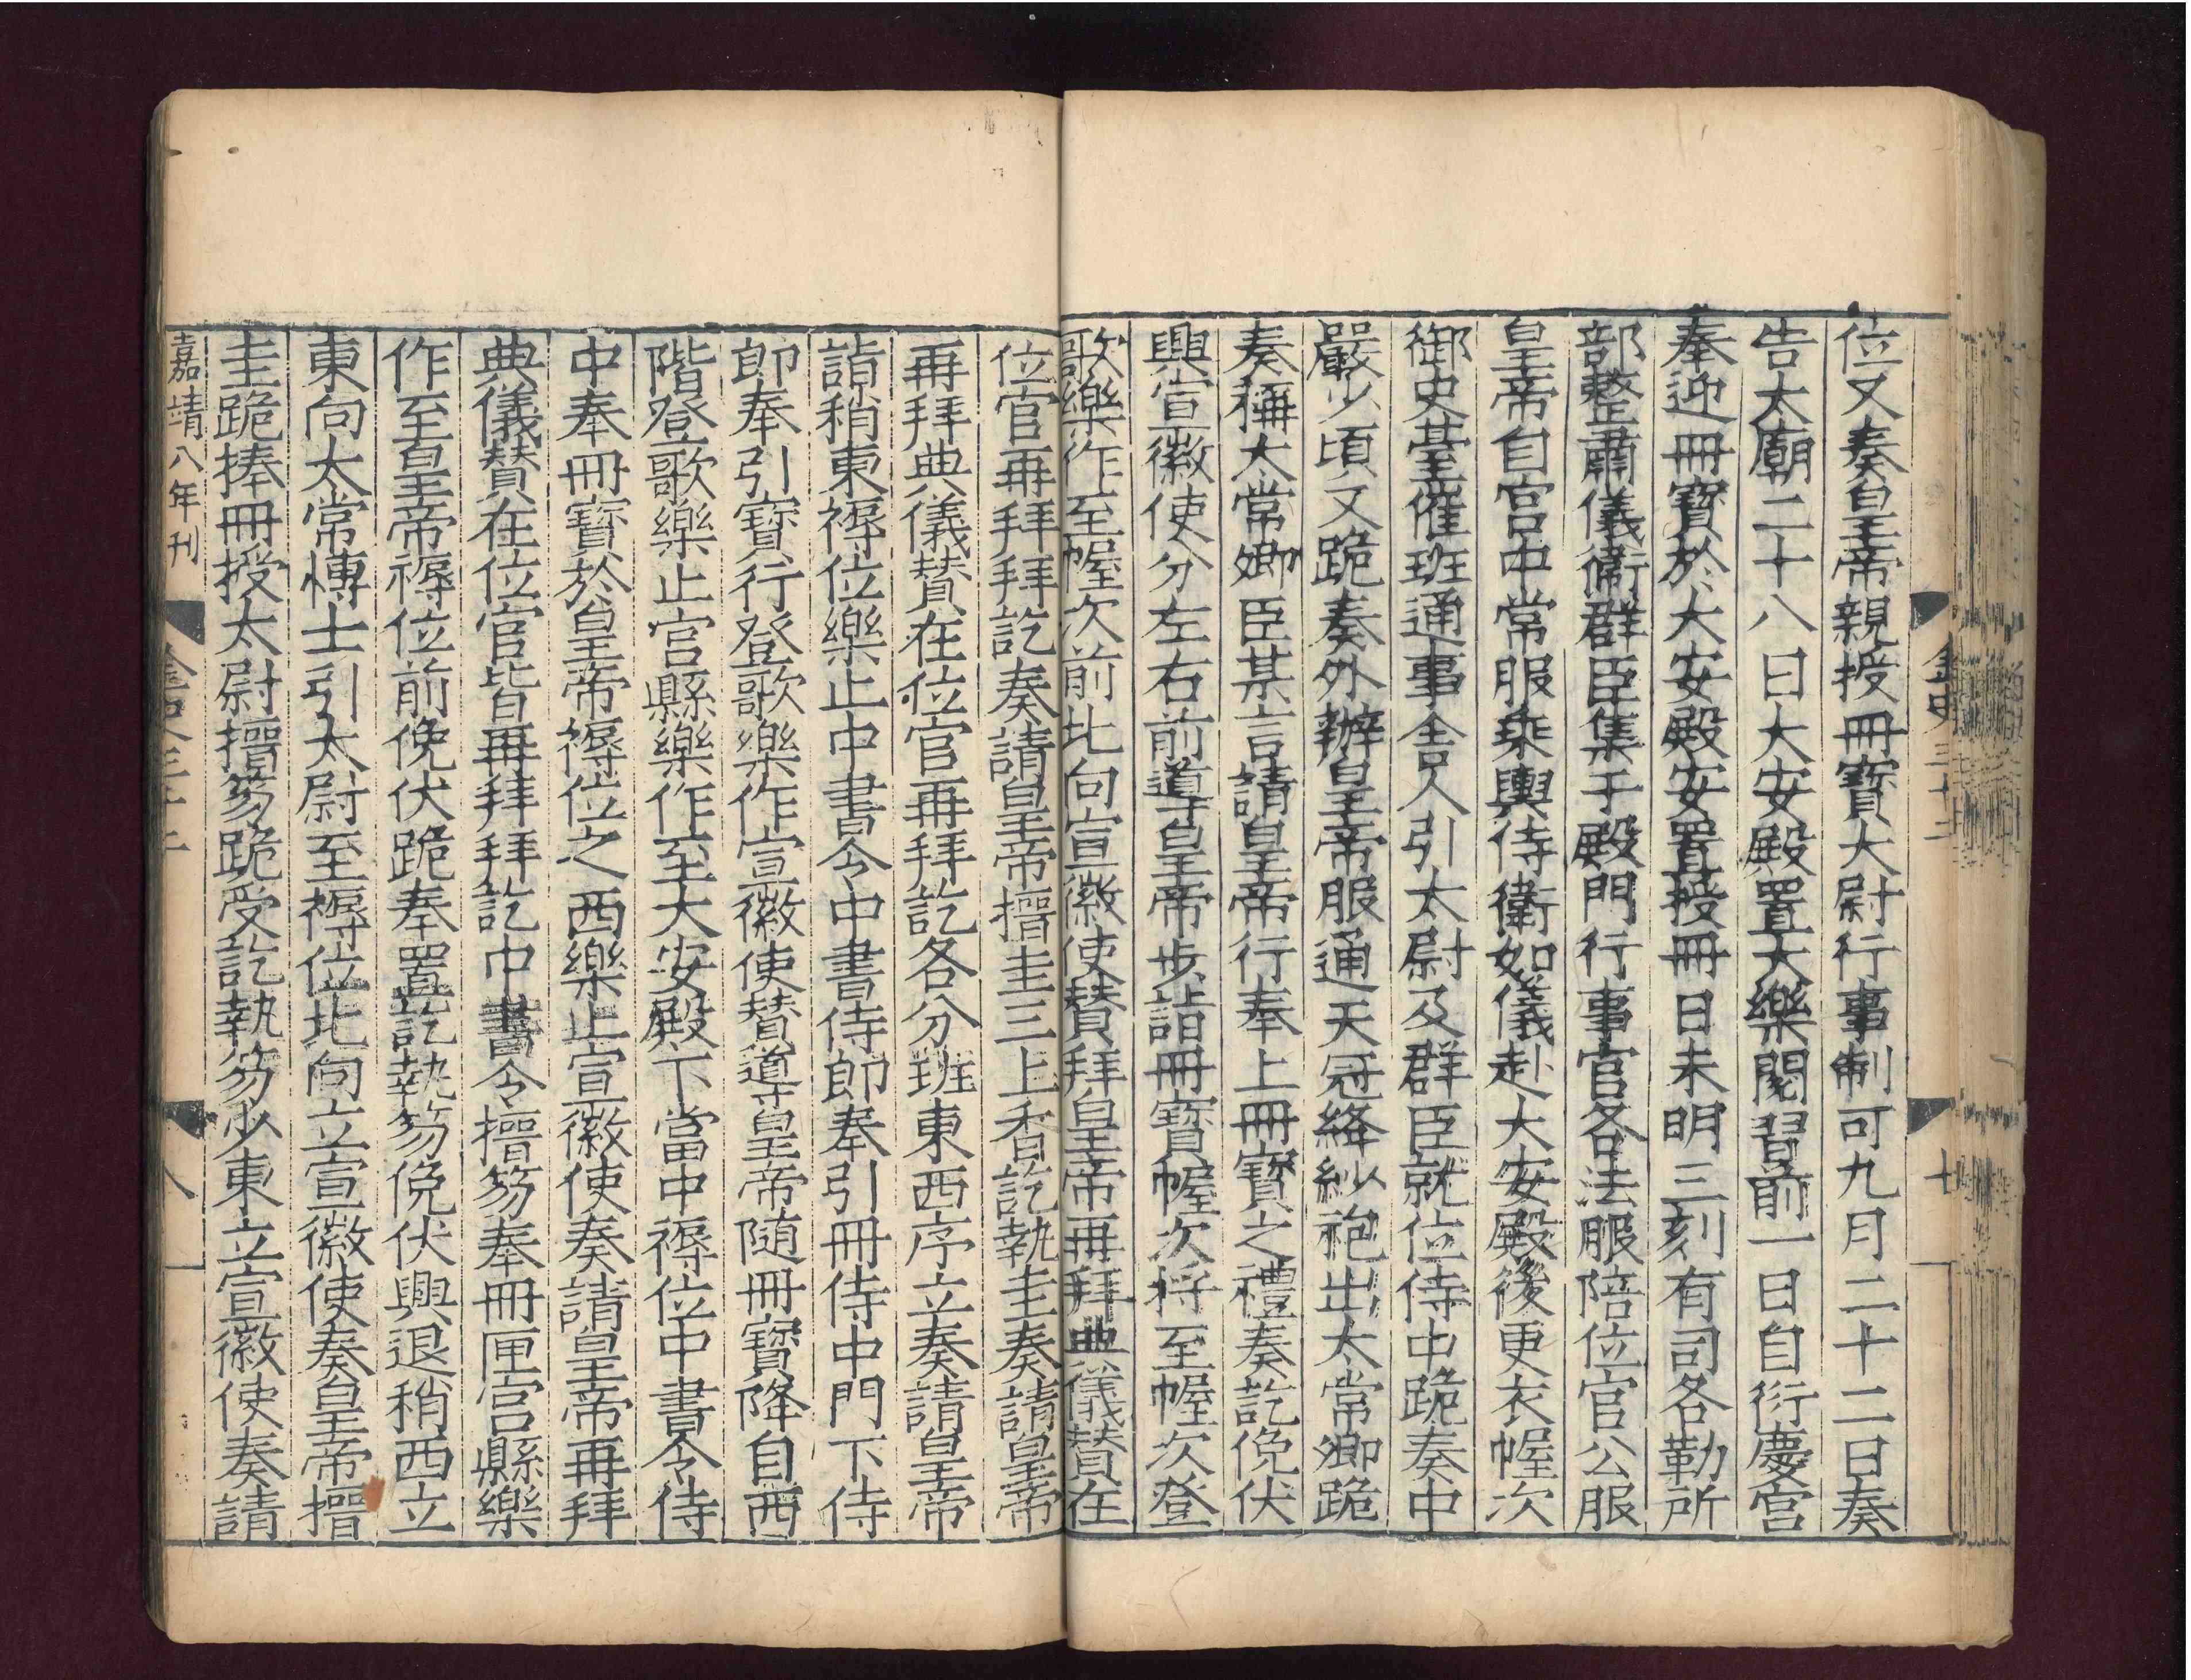 位又奏皇帝親授冊寶大尉行事制可九月二十二日奏
告太廟二十八日大安殿置大樂閱習前一日自衍慶宮
奉迎冊寶於大安殿安置授冊日未明三刻有司各勒所
部整肅儀衛群臣集于殿門行事官各法服陪位官公服
皇帝自宮中常服乘輿侍衛如儀赴大安殿後更衣幄次
御史臺催班通事舍人引太尉及群臣就位侍中跪奏中
嚴少頃又跪奏外辦皇帝服通天冠絳紗袍出太常卿跪
奏稱太常卿臣某言請皇帝行奉上冊寶之禮奏訖俛伏
興宣徽使分左右前導皇帝步詣冊寶幄次將至幄次登
歌樂作至幄次前北向宣徽使贊拜皇帝再拜典儀贊在
位官再拜拜訖奏請皇帝搢圭三上香訖執圭奏請皇帝
再拜典儀贊在位官再拜訖各分班東西序立奏請皇帝
詣稍東褥位樂止中書令中書侍郎奉引冊侍中門下侍
郎奉引寶行登歌樂作宣徽使贊導皇帝隨冊寶降自西
階登歌樂止宮縣樂作至大安殿下當中褥位中書令侍
中奉冊寶於皇帝褥位之西樂止宣徽使奏請皇帝再拜
典儀贊在位官皆再拜拜訖中書令搢笏奉冊匣宮縣樂
作至皇帝褥位前俛伏跪奉置訖執笏俛伏興退稍西立
東向太常博士引太尉至褥位北向立宣徽使奏皇帝搢
圭跪捧冊授太尉搢笏跪受訖執笏少東立宣徽使奏請
嘉靖八年刊